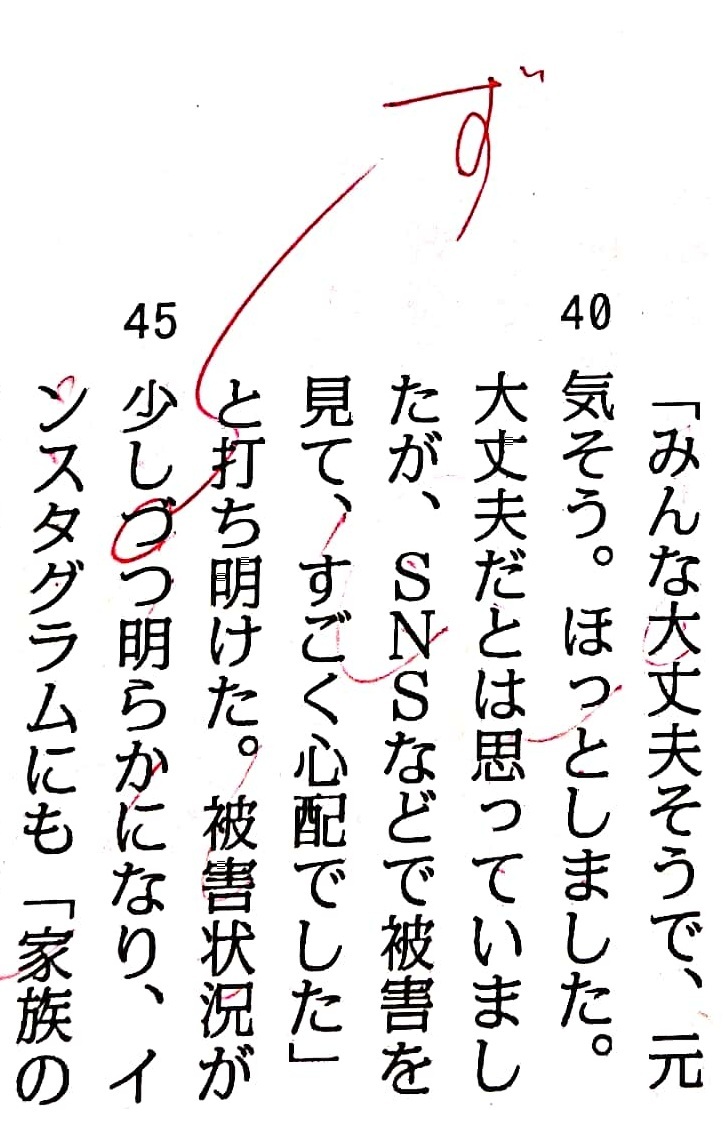 ず
40
45
「みんな大丈夫そうで、元
気そう。ほっとしました。
大丈夫だとは思っていまし
たが、SNSなどで被害を
見て、すごく心配でした」
と打ち明けた。被害状況が
少しづつ明らかになり、イ
ンスタグラムにも「家族の